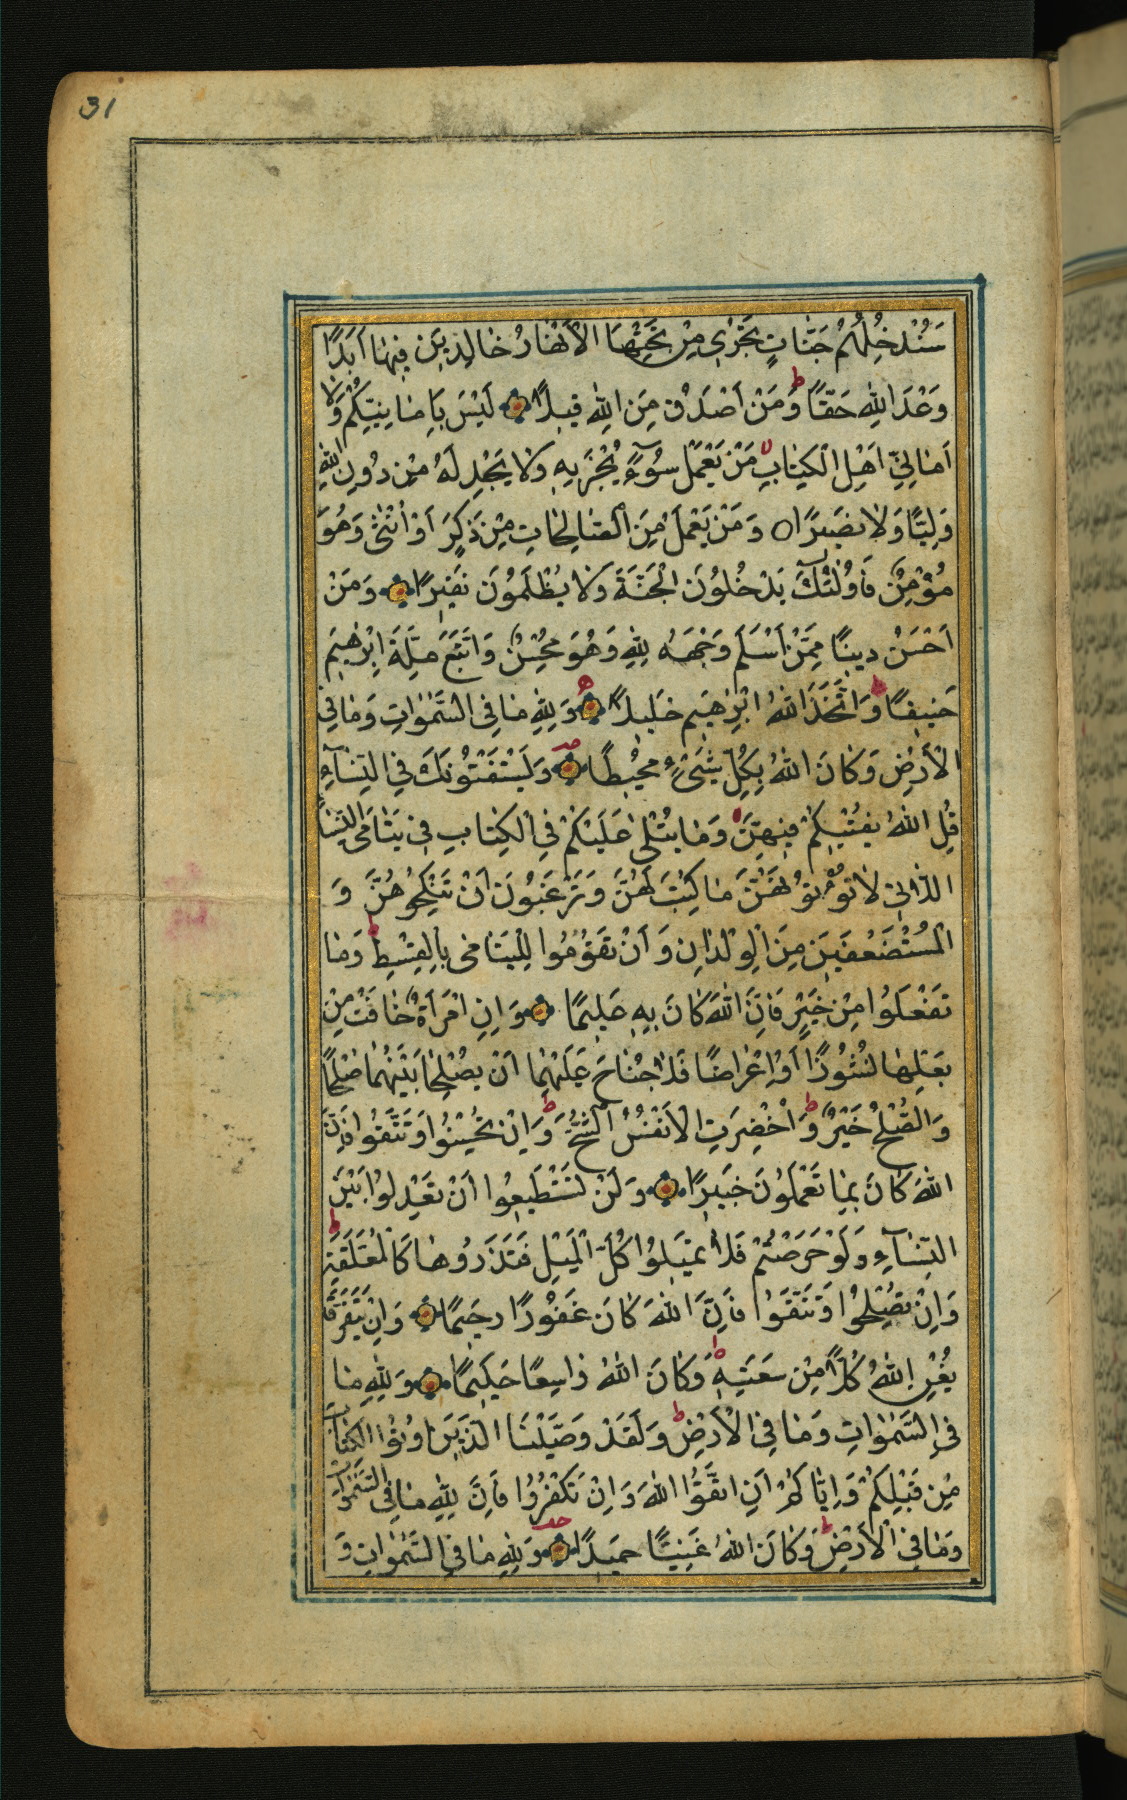 31
سَنُدْخِلُهُمْ جَنّٰاتٍ تَجْرٖي مِنْ تَحْتِهَا الْاَنْهٰارُ خٰالِدٖينَ فٖيهٰا اَبَدًا
وَعْدَ اللّٰهِ حَقًّا ط وَمَنْ اَصْدَقُ مِنَ اللّٰهِ قٖيلًا لَيْسَ بِاَمٰانِيِّكُمْ وَلٰا
اَمٰانِيِّ اَهْلِ الْكِتٰابِ مَنْ يَعْمَلْ سُوٓءًا يُجْزَ بِهٖ وَلٰا يَجِدْ لَهُ مِنْ دُونِ اللّٰهِ
وَلِيًّا وَلٰا نَصٖيرًا وَمَنْ يَعْمَلْ مِنَ الصّٰالِحٰاتِ مِنْ ذَكَرٍ اَوْ اُنْثٰى وَهُوَ
مُؤْمِنٌ فَاُولٰٓئِكَ يَدْخُلُونَ الْجَنَّةَ وَلٰا يُظْلَمُونَ نَقٖيرًا وَمَنْ
اَحْسَنُ دٖينًا مِمَّنْ اَسْلَمَ وَجْهَهُ لِلّٰهِ وَهُوَ مُحْسِنٌ وَاتَّبَعَ مِلَّةَ اِبْرٰهٖيمَ
حَنٖيفًا ط وَاتَّخَذَ اللّٰهُ اِبْرٰهٖيمَ خَلٖيلًا وَلِلّٰهِ مٰا فِي السَّمٰوٰاتِ وَمٰا فِي
الْاَرْضِ وَكٰانَ اللّٰهُ بِكُلِّ شَيْءٍ مُحٖيطًا وَيَسْتَفْتُونَكَ فِي النِّسٰآءِ
قُلِ اللّٰهُ يُفْتٖيكُمْ فٖيهِنَّ وَمٰا يُتْلٰى عَلَيْكُمْ فِي الْكِتٰابِ فٖي يَتٰامَى النِّسٰآءِ
اللّٰاتٖي لٰا تُؤْتُونَهُنَّ مٰا كُتِبَ لَهُنَّ وَتَرْغَبُونَ اَنْ تَنْكِحُوهُنَّ وَ
الْمُسْتَضْعَفٖينَ مِنَ الْوِلْدٰانِ وَاَنْ تَقُومُوا لِلْيَتٰامٰى بِالْقِسْطِ ط وَمٰا
تَفْعَلُوا مِنْ خَيْرٍ فَاِنَّ اللّٰهَ كٰانَ بِهٖ عَلٖيمًا وَاِنِ امْرَاَةٌ خٰافَتْ مِنْ
بَعْلِهٰا نُشُوزًا اَوْ اِعْرٰاضًا فَلٰا جُنٰاحَ عَلَيْهِمٰا اَنْ يُصْلِحٰا بَيْنَهُمٰا صُلْحًا
وَالصُّلْحُ خَيْرٌ ط وَاُحْضِرَتِ الْاَنْفُسُ الشُّحَّ ط وَاِنْ تُحْسِنُوا وَتَتَّقُوا فَاِنَّ
اللّٰهَ كٰانَ بِمٰا تَعْمَلُونَ خَبٖيرًا وَلَنْ تَسْتَطٖيعُوا اَنْ تَعْدِلُوا بَيْنَ
النِّسٰآءِ وَلَوْ حَرَصْتُمْ فَلٰا تَمٖيلُوا كُلَّ الْمَيْلِ فَتَذَرُوهٰا كَالْمُعَلَّقَةِ ط
وَاِنْ تُصْلِحُوا وَتَتَّقُوا فَاِنَّ اللّٰهَ كٰانَ غَفُورًا رحٖيمًا وَاِنْ يَتَفَرَّقٰا
يُغْنِ اللّٰهُ كُلًّا مِنْ سَعَتِهٖ ط وَكٰانَ اللّٰهُ وٰاسِعًا حَكٖيمًا وَلِلّٰهِ مٰا
فِي السَّمٰوٰاتِ وَمٰا فِي الْاَرْضِ ط وَلَقَدْ وَصَّيْنَا الَّذٖينَ اُوتُوا الْكِتٰابَ
مِنْ قَبْلِكُمْ وَاِيّٰاكُمْ اَنِ اتَّقُوا اللّٰهَ وَاِنْ تَكْفُرُوا فَاِنَّ لِلّٰهِ مٰا فِي السَّمٰوٰاتِ
وَمٰا فِي الْاَرْضِ ط وَكٰانَ اللّٰهُ غَنِيًّا حمٖيدًا وَلِلّٰهِ مٰا فِي السَّمٰوٰاتِ وَ